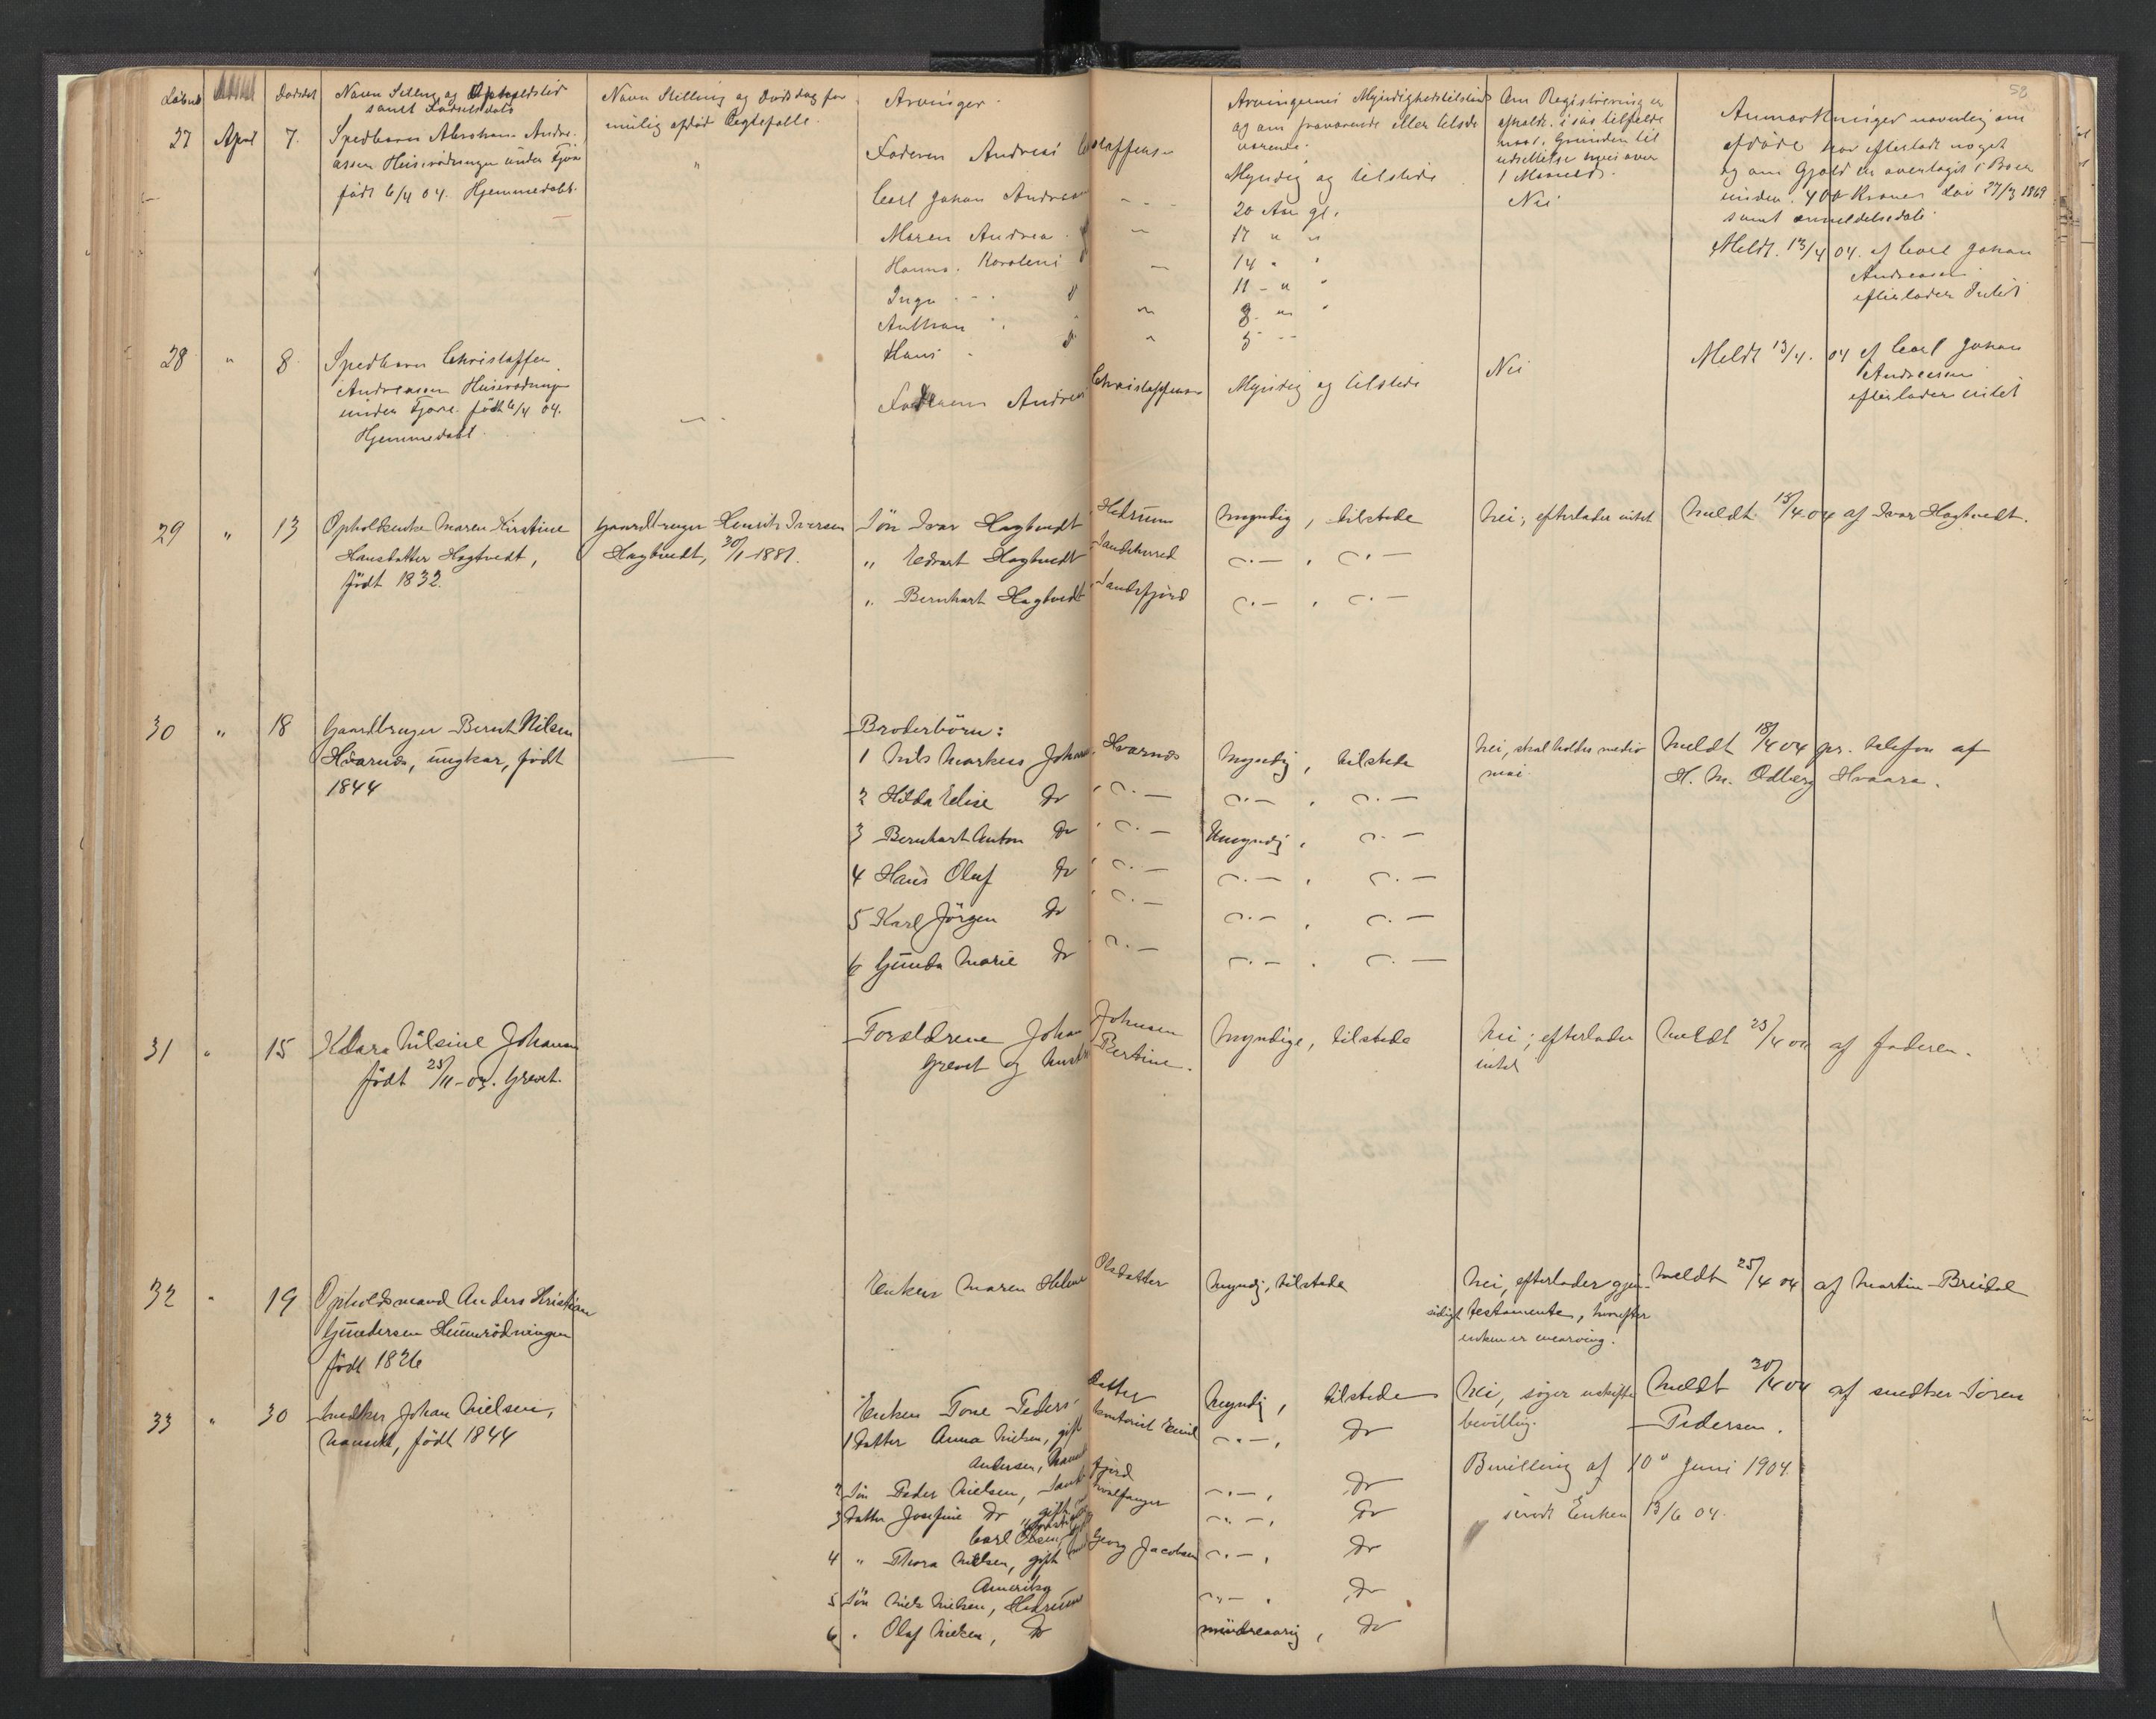 58
Løbnr Dødsdat Navn Stilling og Opholdssted Navn Stilling og Dødsdag for Arvinger. Arvingernes Myndighedstilstand Om Registrering er Anmærkninger navnlig om
samt Fødselsdato mulig afdød Ægtefælle. og om fraværende eller tilstede afholdt. i saa tilfælde afdøde har efterladt noget
værende. Grunden til og om Gjæld er overtaget i Boer
udsættelse over under 400 Kroner Lov 27/3 1869
1 Maaned. samt anmeldelsesdato.
27 April 7. Spedbarn Abraham Andre- " Faderen Andreas Christoffersen Myndig og tilstede Nei Meldt. 13/4 04. af Carl Johan
assen Huserødningen under Fjære Carl Johan Andreasen - - - 20 Aar gl. Andreasen
født 6/4 04. Hjemmedøbt. Maren Andrea " 17 " " efterlader Intet
Hanna. Karoleni " 14 " "
Inga - - - 11 - " "
Anthon " 8. " "
Hans - " 5 - -
28 " 8 Spedbarn Christoffer - Faderen Andreas Christoffersen Myndig og tilstede Nei Meldt 13/4. 04 af Carl Johan
Andreassen Huserødningen Andreasen
under Fjære født 6/4 04. efterlader intet
Hjemmedøbt.
29 " 13 Opholdsenke Maren Kirstine Gaardbruger Henrik Iversen Søn Ivar Hagtvedt, Hedrum Myndig, tilstede Nei; efterlader intet Meldt 15/4 04 af Ivar Hagtvedt.
Hansdatter Hagtvedt, Hagtvedt, 30/1 1881. " Edvart Hagtvedt, Sandeherred -"- , -"-
født 1832. " Bernhart Hagtvedt, Sandefjord -"- , -"-
30 " 18 Gaardbruger Bernt Nilsen — Broderbørn:
Hvarnes, ungkar, født 1 Nils Markus Johans. Hvarnes Myndig, tilstede Nei, skal holdes medio Meldt 18/4 04 pr. telefon af
1844 2 Hilda Elise Do -"- -"- , -"- mai H. M. Odberg Hvaara.
3 Bernhart Anton Do -"- Umyndig, -"-
4 Hans Oluf Do -"- -"- , -"-
5 Karl Jörgen Do -"- -"- , -"-
6 Gunda Marie Do -"- -"- , -"-
31 " 15 Klara Nilsine Johansen Forældrene Johan Johnsen Myndige, tilstede Nei; efterlader Meldt 25/4 04 af faderen.
født 25/11-03. Grevet. Grevet og hustru Bertine. intet
32 " 19 Opholdsmand Anders Kristian Enken Maren Helene Olsdatter Myndig, tilstede Nei, efterlader gjen- Meldt 25/4 04 af Martin Breidal
Gundersen Huserødningen sidigt testamente, hvorefter
født 1826 enken er enearving.
33 " 30 Snedker Johan Nielsen, Enken Tone Peders- datter Myndig, tilstede Nei, søger uskifte- Meldt 30/4 04 af snedker Sören
Nanset, født 1844 1 Datter Anna Nielsen, gift kontorist Emil -"-, Do bevilling. Pedersen.
Andersen, Nanset
2 Søn Peder Nielsen, Sandefjord -"-, Do Bevilling af 10de Juni 1904.
3 Datter Josefine Do gift hvalfanger -"-, Do sendt Enken 13/6 04.
Carl Olsen,
4 " Thora Nielsen, gift med Georg Jacobsen -"-, Do
Amerika
5 Søn Niels Nielsen, Hedrum -"-, Do
6 " Olaf Nielsen, Do mindreaarig, Do